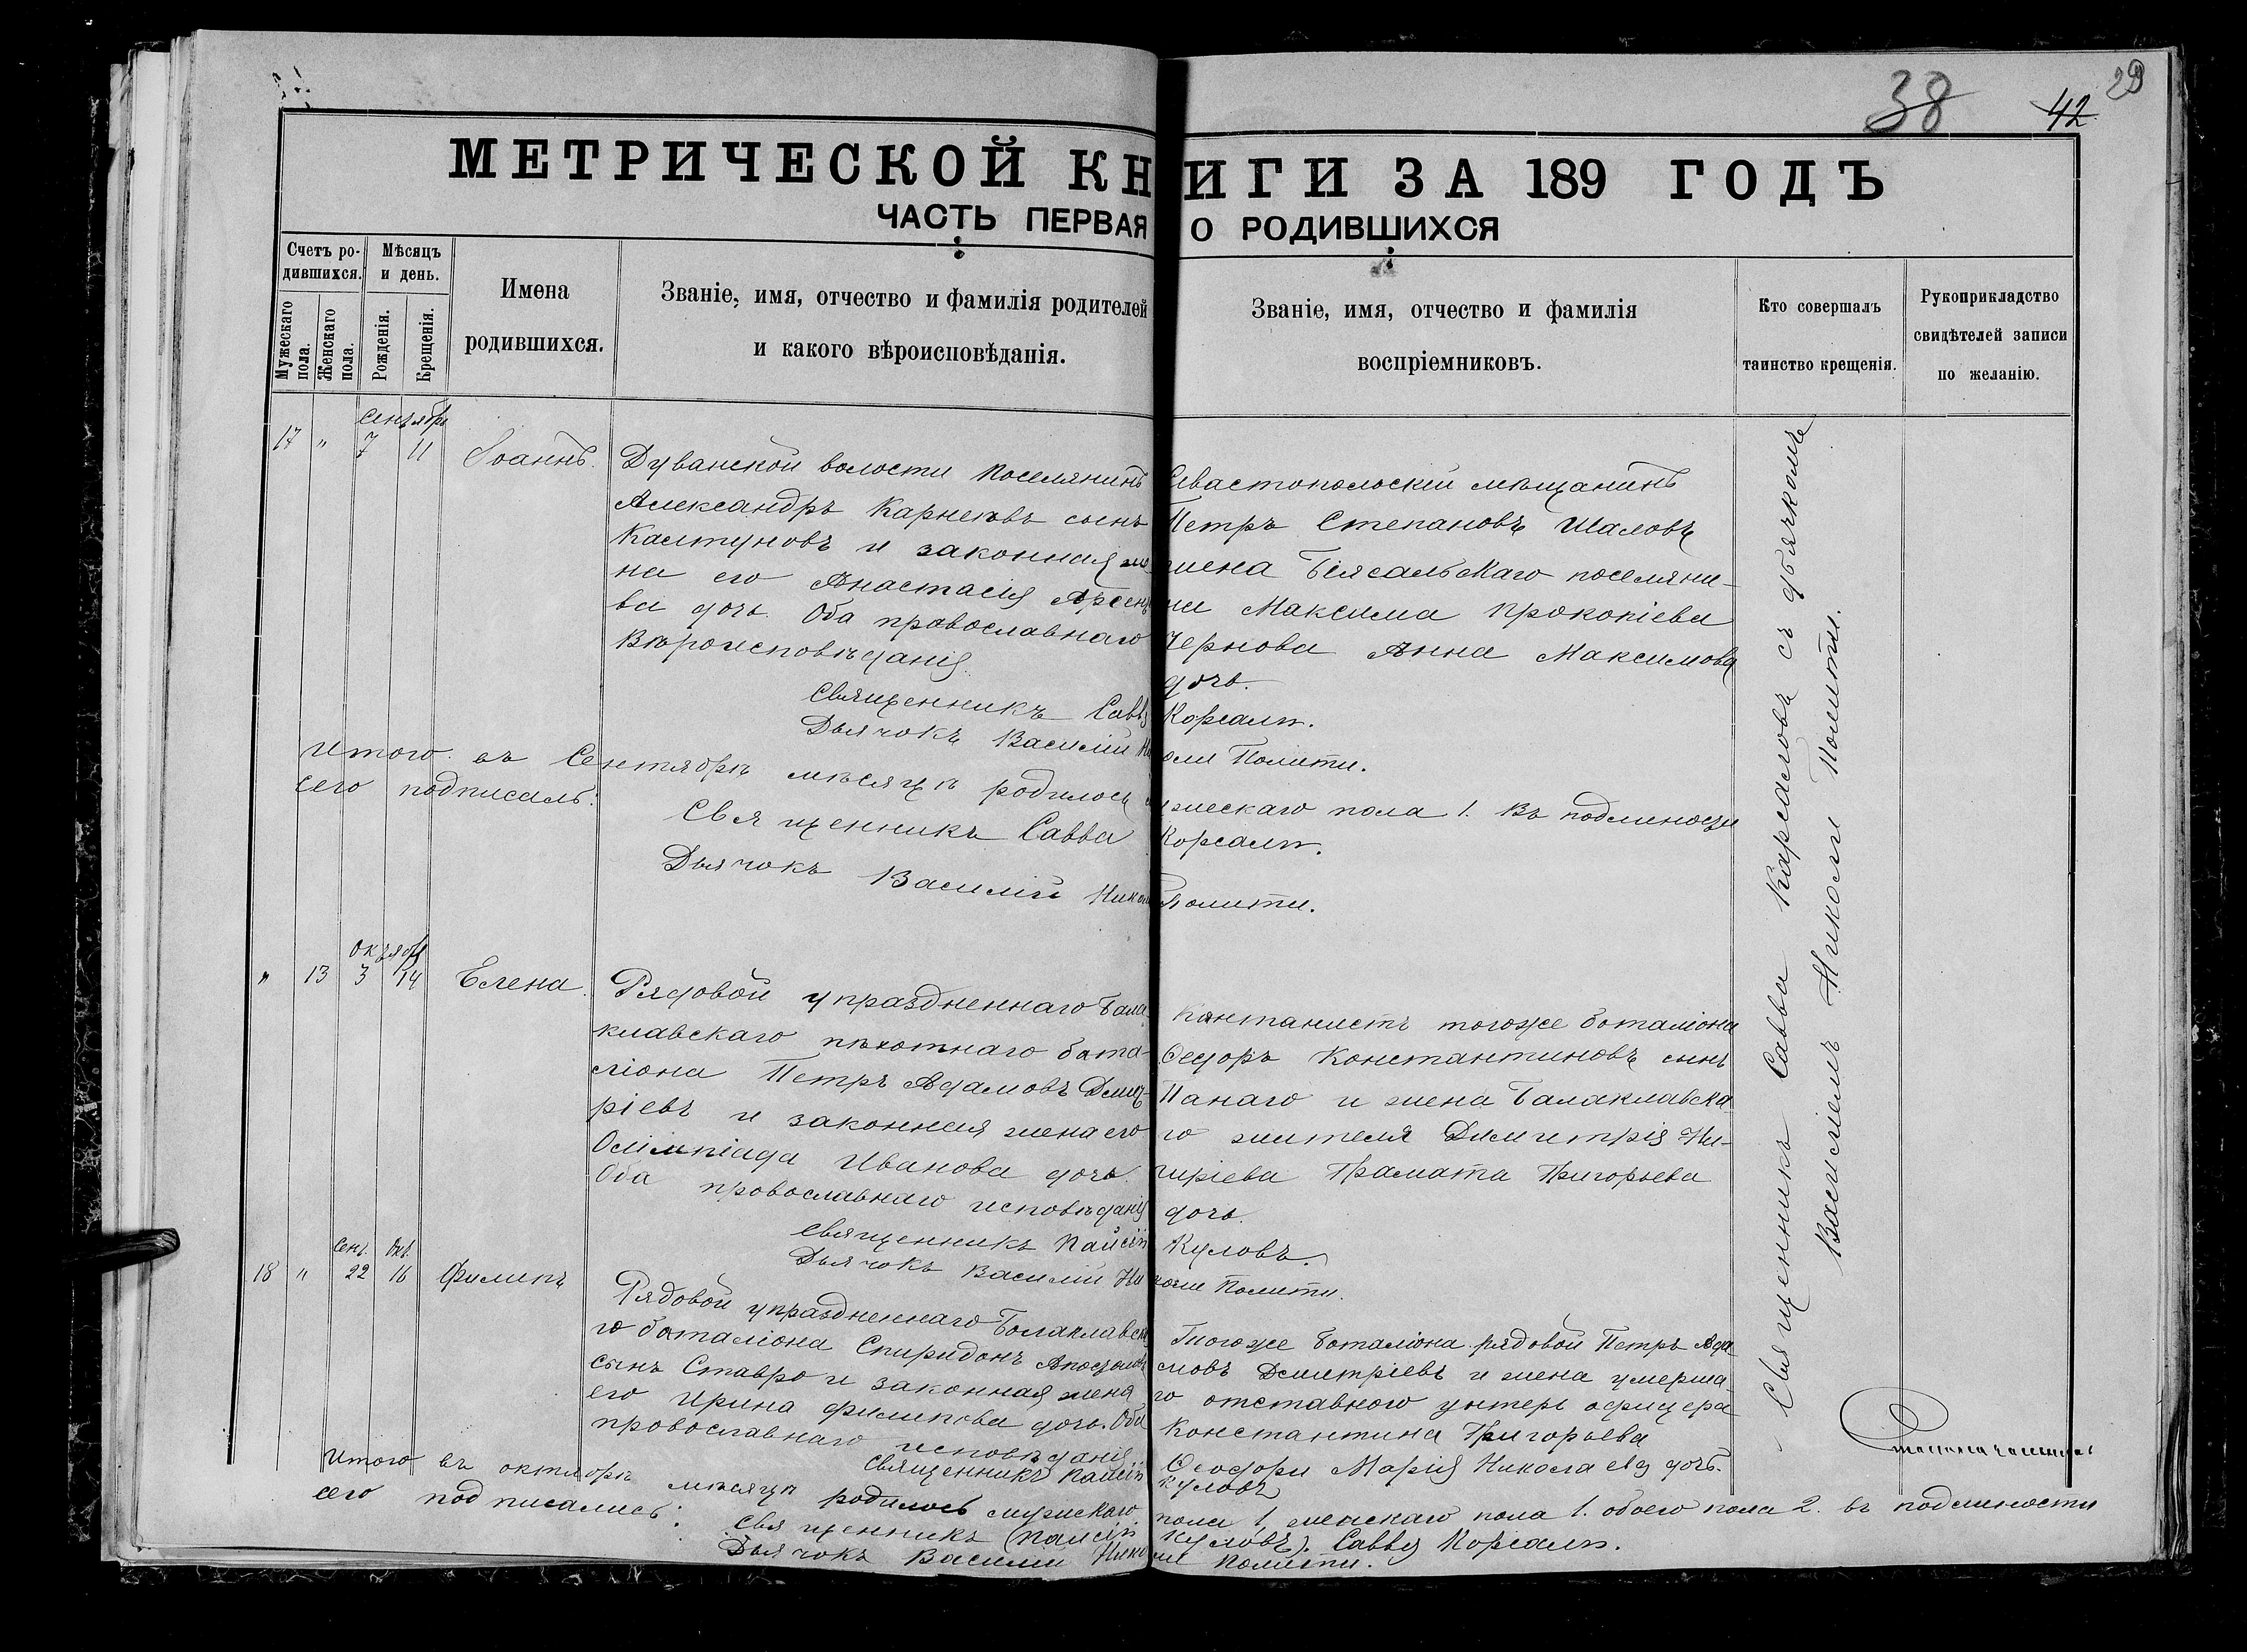 38
42
29
МЕТРИЧЕСКОЙ КНИГИ ЗА 189 ГОДЪ
ЧАСТЬ ПЕРВАЯ О РОДИВШИХСЯ
Счетъ ро-
дившихся.
Мужескаго
пола.
Женскаго
пола.
Мѣсяцъ
и день.
Рожденія.
Крещенія.
Имена
родившихся.
Званіе, имя, отчество и фамилія родителей
и какого вѣроисповѣданія.
Званіе, имя, отчество и фамилія
воспріемниковъ.
Кто совершалъ
таинство крещенія.
Рукоприкладство
свидѣтелей записи
по желанію.
Сентябрь
17 " 7 11 Іоаннъ.
Дуванской волости поселянинъ
Александръ Карнеевъ сынъ
Калтуновъ и законная же-
на его Анастасія Арсень
ва дочь. Оба православнаго
вѣроисповѣданія.
Севастопольскій мѣщанинъ
Петръ Степановъ Шаловъ
жена Біясальскаго поселяни-
на Максима Прокопіева
Чернова Анна Максимова
дочь.
Священникъ Савва Корсали.
Дьячокъ Василій Николи Полити.
Итого въ Сентябрѣ мѣсяцѣ родилось мужескаго пола 1. Въ подлинности
сего подписалъ:
Священникъ Савва Корсали.
Дьячокъ Василій Никол Полити.
Октября
" 13 3 14 Елена.
Рядовой упраздненнаго Бала-
клавскаго пѣхотнаго бата-
ліона Петръ Адамовъ Дмит-
ріевъ и законная жена его
Олимпіада Иванова дочь.
Оба провославнаго исповѣданія
Кантанистъ тогоже баталіона
Феодоръ Константиновъ сынъ
Панаго и жена Балаклавска
го жителя Димитрія Ни-
гиріева Грамата Григорьева
дочь.
Священникъ Паисій Куловъ.
Дьячокъ Василій Николи Полити.
Сент. Окт.
18 " 22 16 Филипъ
Рядовой упраздненнаго Балаклавска
го баталіона Спиридонъ Апостоловъ
сынъ Ставро и законная жена
его Ирина Филипова дочь. Оба
провославнаго исповѣданія
Тогоже баталіона рядовой Петръ Ада
мовъ Дмитріевъ и жена умерша-
го отставного унтеръ офицера
Константина Григорьева
Феодори Марія Николаева дочь.
Священникъ Паисій Куловъ
Итого въ октябрѣ мѣсяцѣ родилось мужскаго пола 1, женскаго пола 1. обоего пола 2. въ подлинности
сего подписались:
Священникъ (Паисій Куловъ). Савва Корсали.
Дьячокъ Василій Николи Полити.
Священникъ Савва Карсаловъ съ дьячкомъ
Василіемъ Николи Полити.